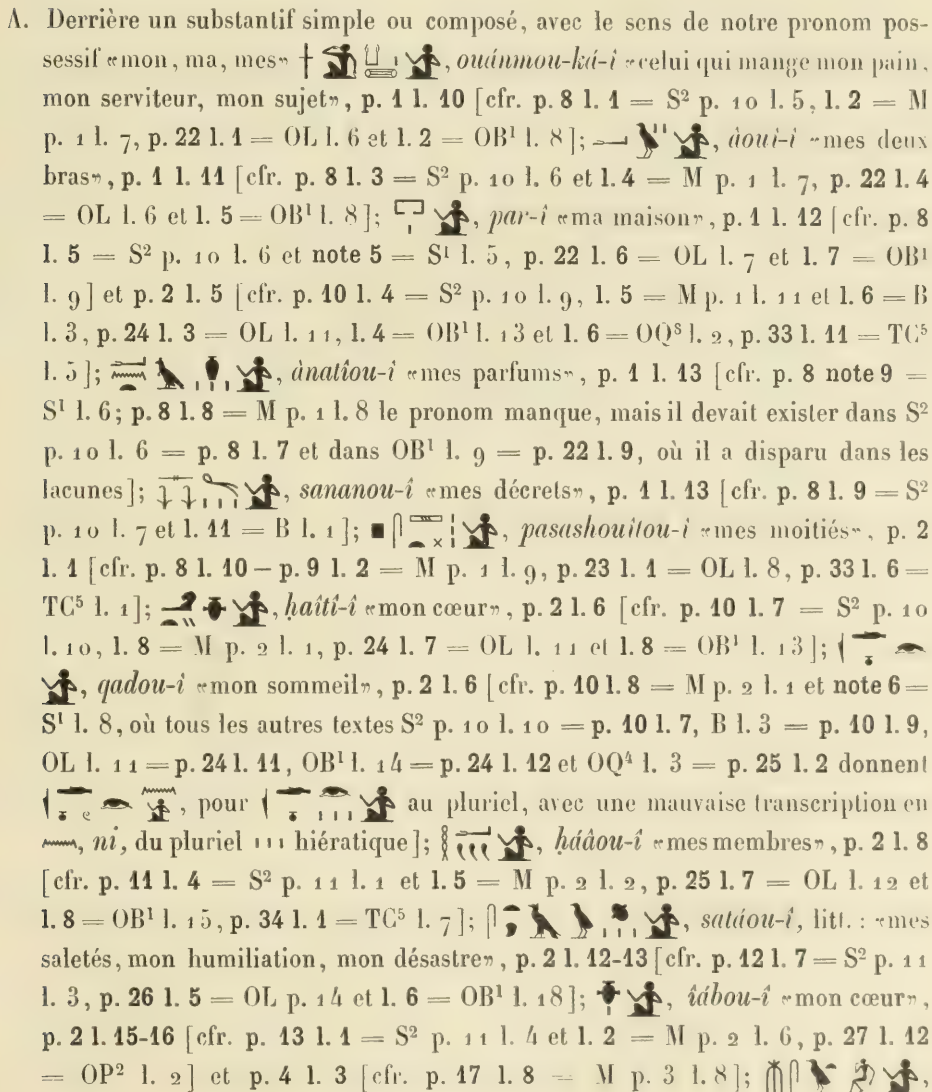 A. Derrière un substantif simple ou composé, avec le sens de notre pronom pos-
sessif «mon, ma, mes» , ouánmou-ká-î «celui qui mange mon pain,
mon serviteur, mon sujet», p. 1 l. 10 [cfr. p. 8 l. 1 = S² p. 10 l. 5, l. 2 = M
p. 1 l. 7, p. 22 l. 1 = OL l. 6 et l. 2 = OB¹ l. 8]; , àoui-î «mes deux
bras», p. 1 l. 11 [cfr. p. 8 l. 3 = S² p. 10 l. 6 et l. 4 = M p. 1 l. 7, p. 22 l. 4
= OL l. 6 et l. 5 = OB¹ l. 8]; , par-î «ma maison», p. 1 l. 12 [cfr. p. 8
l. 5 = S² p. 10 l. 6 et note 5 = S¹ l. 5, p. 22 l. 6 = OL l. 7 et l. 7 = OB¹
l. 9] et p. 2 l. 5 [cfr. p. 10 l. 4 = S² p. 10 l. 9, l. 5 = M p. 1 l. 11 et l. 6 = B
l. 3, p. 24 l. 3 = OL l. 11, l. 4 = OB¹ l. 13 et l. 6 = OQ⁸ l. 2, p. 33 l. 11 = TC⁵
l. 5]; , ànatîou-î «mes parfums», p. 1 l. 13 [cfr. p. 8 note 9 =
S¹ l. 6; p. 8 l. 8 = M p. 1 l. 8 le pronom manque, mais il devait exister dans S²
p. 10 l. 6 = p. 8 l. 7 et dans OB¹ l. 9 = p. 22 l. 9, où il a disparu dans les
lacunes]; , sananou-î «mes décrets», p. 1 l. 13 [cfr. p. 8 l. 9 = S²
p. 10 l. 7 et l. 11 = B l. 1]; , pasashouîtou-î «mes moitiés», p. 2
l. 1 [cfr. p. 8 l. 10 – p. 9 l. 2 = M p. 1 l. 9, p. 23 l. 1 = OL l. 8, p. 33 l. 6 =
TC⁵ l. 1]; , ḥaîtî-î «mon cœur», p. 2 l. 6 [cfr. p. 10 l. 7 = S² p. 10
l. 10, l. 8 = M p. 2 l. 1, p. 24 l. 7 = OL l. 11 et l. 8 = OB¹ l. 13];
, qadou-î «mon sommeil», p. 2 l. 6 [cfr. p. 10 l. 8 = M p. 2 l. 1 et note 6 =
S¹ l. 8, où tous les autres textes S² p. 10 l. 10 = p. 10 l. 7, B l. 3 = p. 10 l. 9,
OL l. 11 = p. 24 l. 11, OB¹ l. 14 = p. 24 l. 12 et OQ⁴ l. 3 = p. 25 l. 2 donnent
, pour au pluriel, avec une mauvaise transcription en
, ni, du pluriel ııı hiératique]; , ḥáâou-î «mes membres», p. 2 l. 8
[cfr. p. 11 l. 4 = S² p. 11 l. 1 et l. 5 = M p. 2 l. 2, p. 25 l. 7 = OL l. 12 et
l. 8 = OB¹ l. 15, p. 34 l. 1 = TC⁵ l. 7]; , satáou-î, litt. : «mes
saletés, mon humiliation, mon désastre», p. 2 l. 12-13 [cfr. p. 12 l. 7 = S² p. 11
l. 3, p. 26 l. 5 = OL p. 14 et l. 6 = OB¹ l. 18]; , îábou-î «mon cœur»,
p. 2 l. 15-16 [cfr. p. 13 l. 1 = S² p. 11 l. 4 et l. 2 = M p. 2 l. 6, p. 27 l. 12
= OP² l. 2] et p. 4 l. 3 [cfr. p. 17 l. 8 = M p. 3 l. 8]; ,